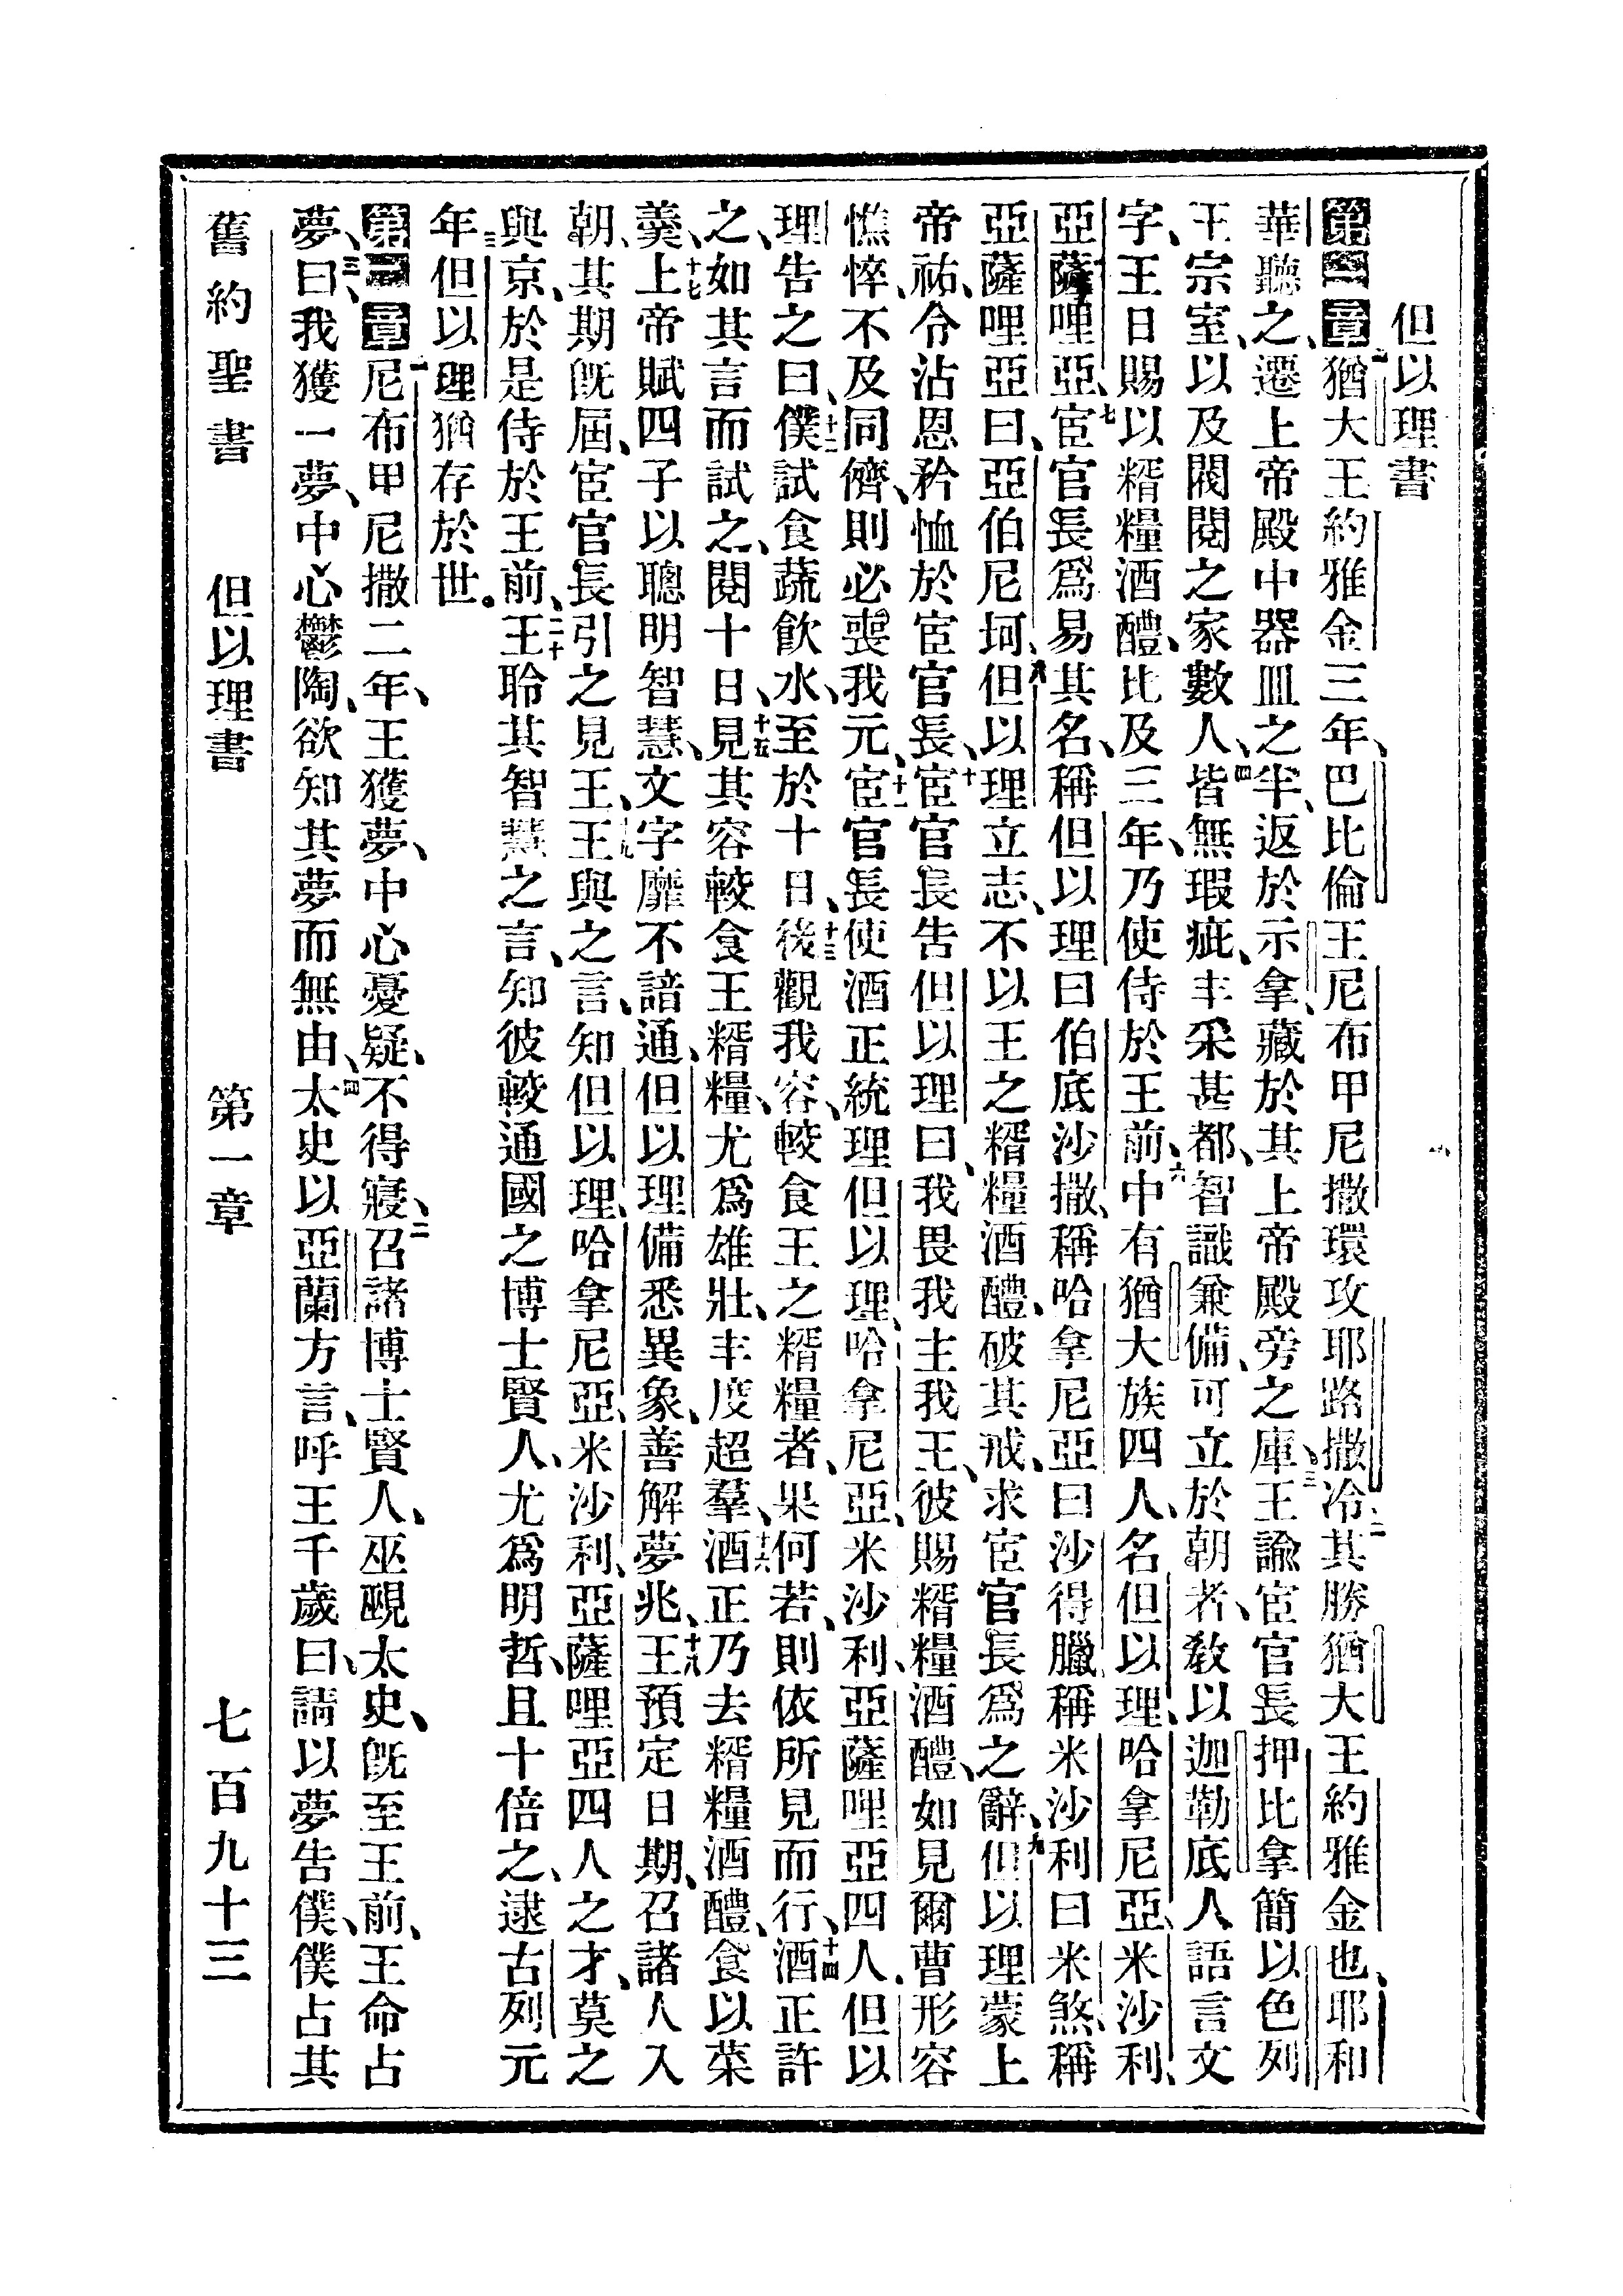 但以理書
第一章一猶大王約雅金三年、巴比倫王尼布甲尼撒環攻耶路撒冷、二其勝猶大王約雅金也、耶和
華聽之、遷上帝殿中器皿之半、返於示拿、藏於其上帝殿旁之庫、三王諭宦官長押比拿簡以色列
王宗室、以及閥閱之家數人、四皆無瑕疵、丰采甚都、智識兼備、可立於朝者、教以迦勒底人語言文
字、王日賜以糈糧酒醴、比及三年、乃使侍於王前、六中有猶大族四人、名但以理、哈拿尼亞、米沙利、
亞薩哩亞、七宦官長爲易其名、稱但以理曰伯底沙撒、稱哈拿尼亞曰沙得臘、稱米沙利曰米煞、稱
亞薩哩亞曰、亞伯尼坷、八但以理立志、不以王之糈糧酒醴、破其戒、求宦官長爲之辭、九但以理蒙上
帝祐、令沾恩矜恤於宦官長、十宦官長告但以理曰、我畏我主我王、彼賜糈糧酒醴、如見爾曹形容
憔悴、不及同儕、則必喪我元、十一宦官長使酒正統理但以理、哈拿尼亞、米沙利、亞薩哩亞四人、但以
理告之曰、十二僕試食蔬飲水、至於十日、十三後觀我容、較食王之糈糧者、果何若、則依所見而行、十四酒正許
之、如其言而試之、閱十日、十五見其容較食王糈糧、尤爲雄壯、丰度超羣、十六酒正乃去糈糧酒醴、食以菜
羹、十七上帝賦四子以聰明智慧、文字靡不諳通、但以理備悉異象、善解夢兆、十八王預定日期、召諸人入
朝、其期旣屆、宦官長引之見王、十九王與之言、知但以理、哈拿尼亞、米沙利、亞薩哩亞四人之才、莫之
與京、於是侍於王前、二十王聆其智慧之言、知彼較通國之博士賢人、尤爲明哲、且十倍之、逮古列元
年、但以理猶存於世。
第二章一尼布甲尼撒二年、王獲夢、中心憂疑、不得寢、二召諸博士賢人、巫覡太史、旣至王前、王命占
夢、三曰、我獲一夢、中心鬱陶、欲知其夢而無由、四太史以亞蘭方言、呼王千歲曰、請以夢告僕、僕占其
舊約聖書 但以理書 第一章 七百九十三